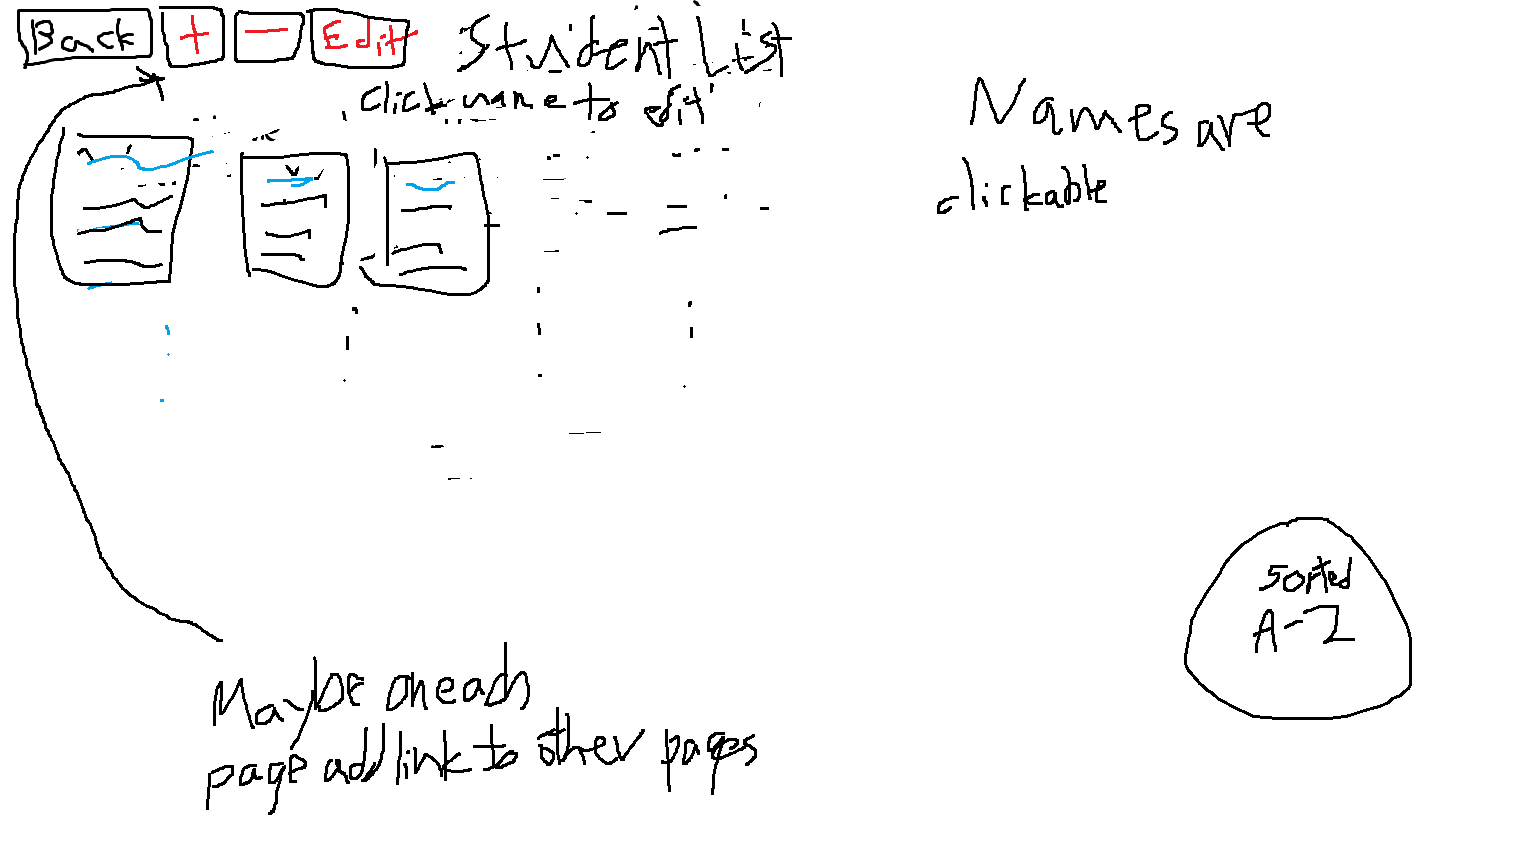 Back + - Edit Student List
click name to edit
Names are
clickable
Sorted
A-Z
Maybe on each
page add link to other pages